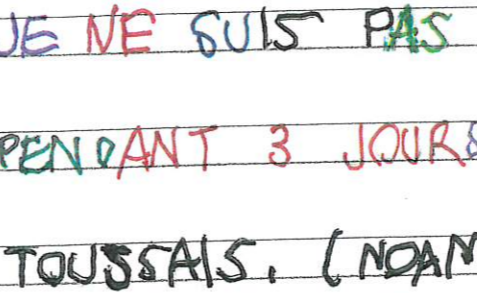 JE NE SUIS PAS
PENDANT 3 JOURS
TOUSSAIS. (NOAM